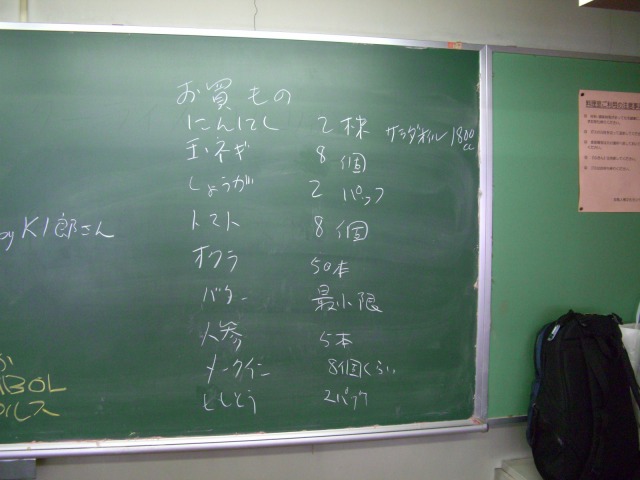 お買もの
にんにく 2株 サラダオイル 1800cc
玉ネギ 8個
しょうが 2パック
トマト 8個
オクラ 50本
バター 最小限
人参 5本
メークイン 8個くらい
ししとう 2パック
by K1郎さん
BOL
料理室ご利用の注意事